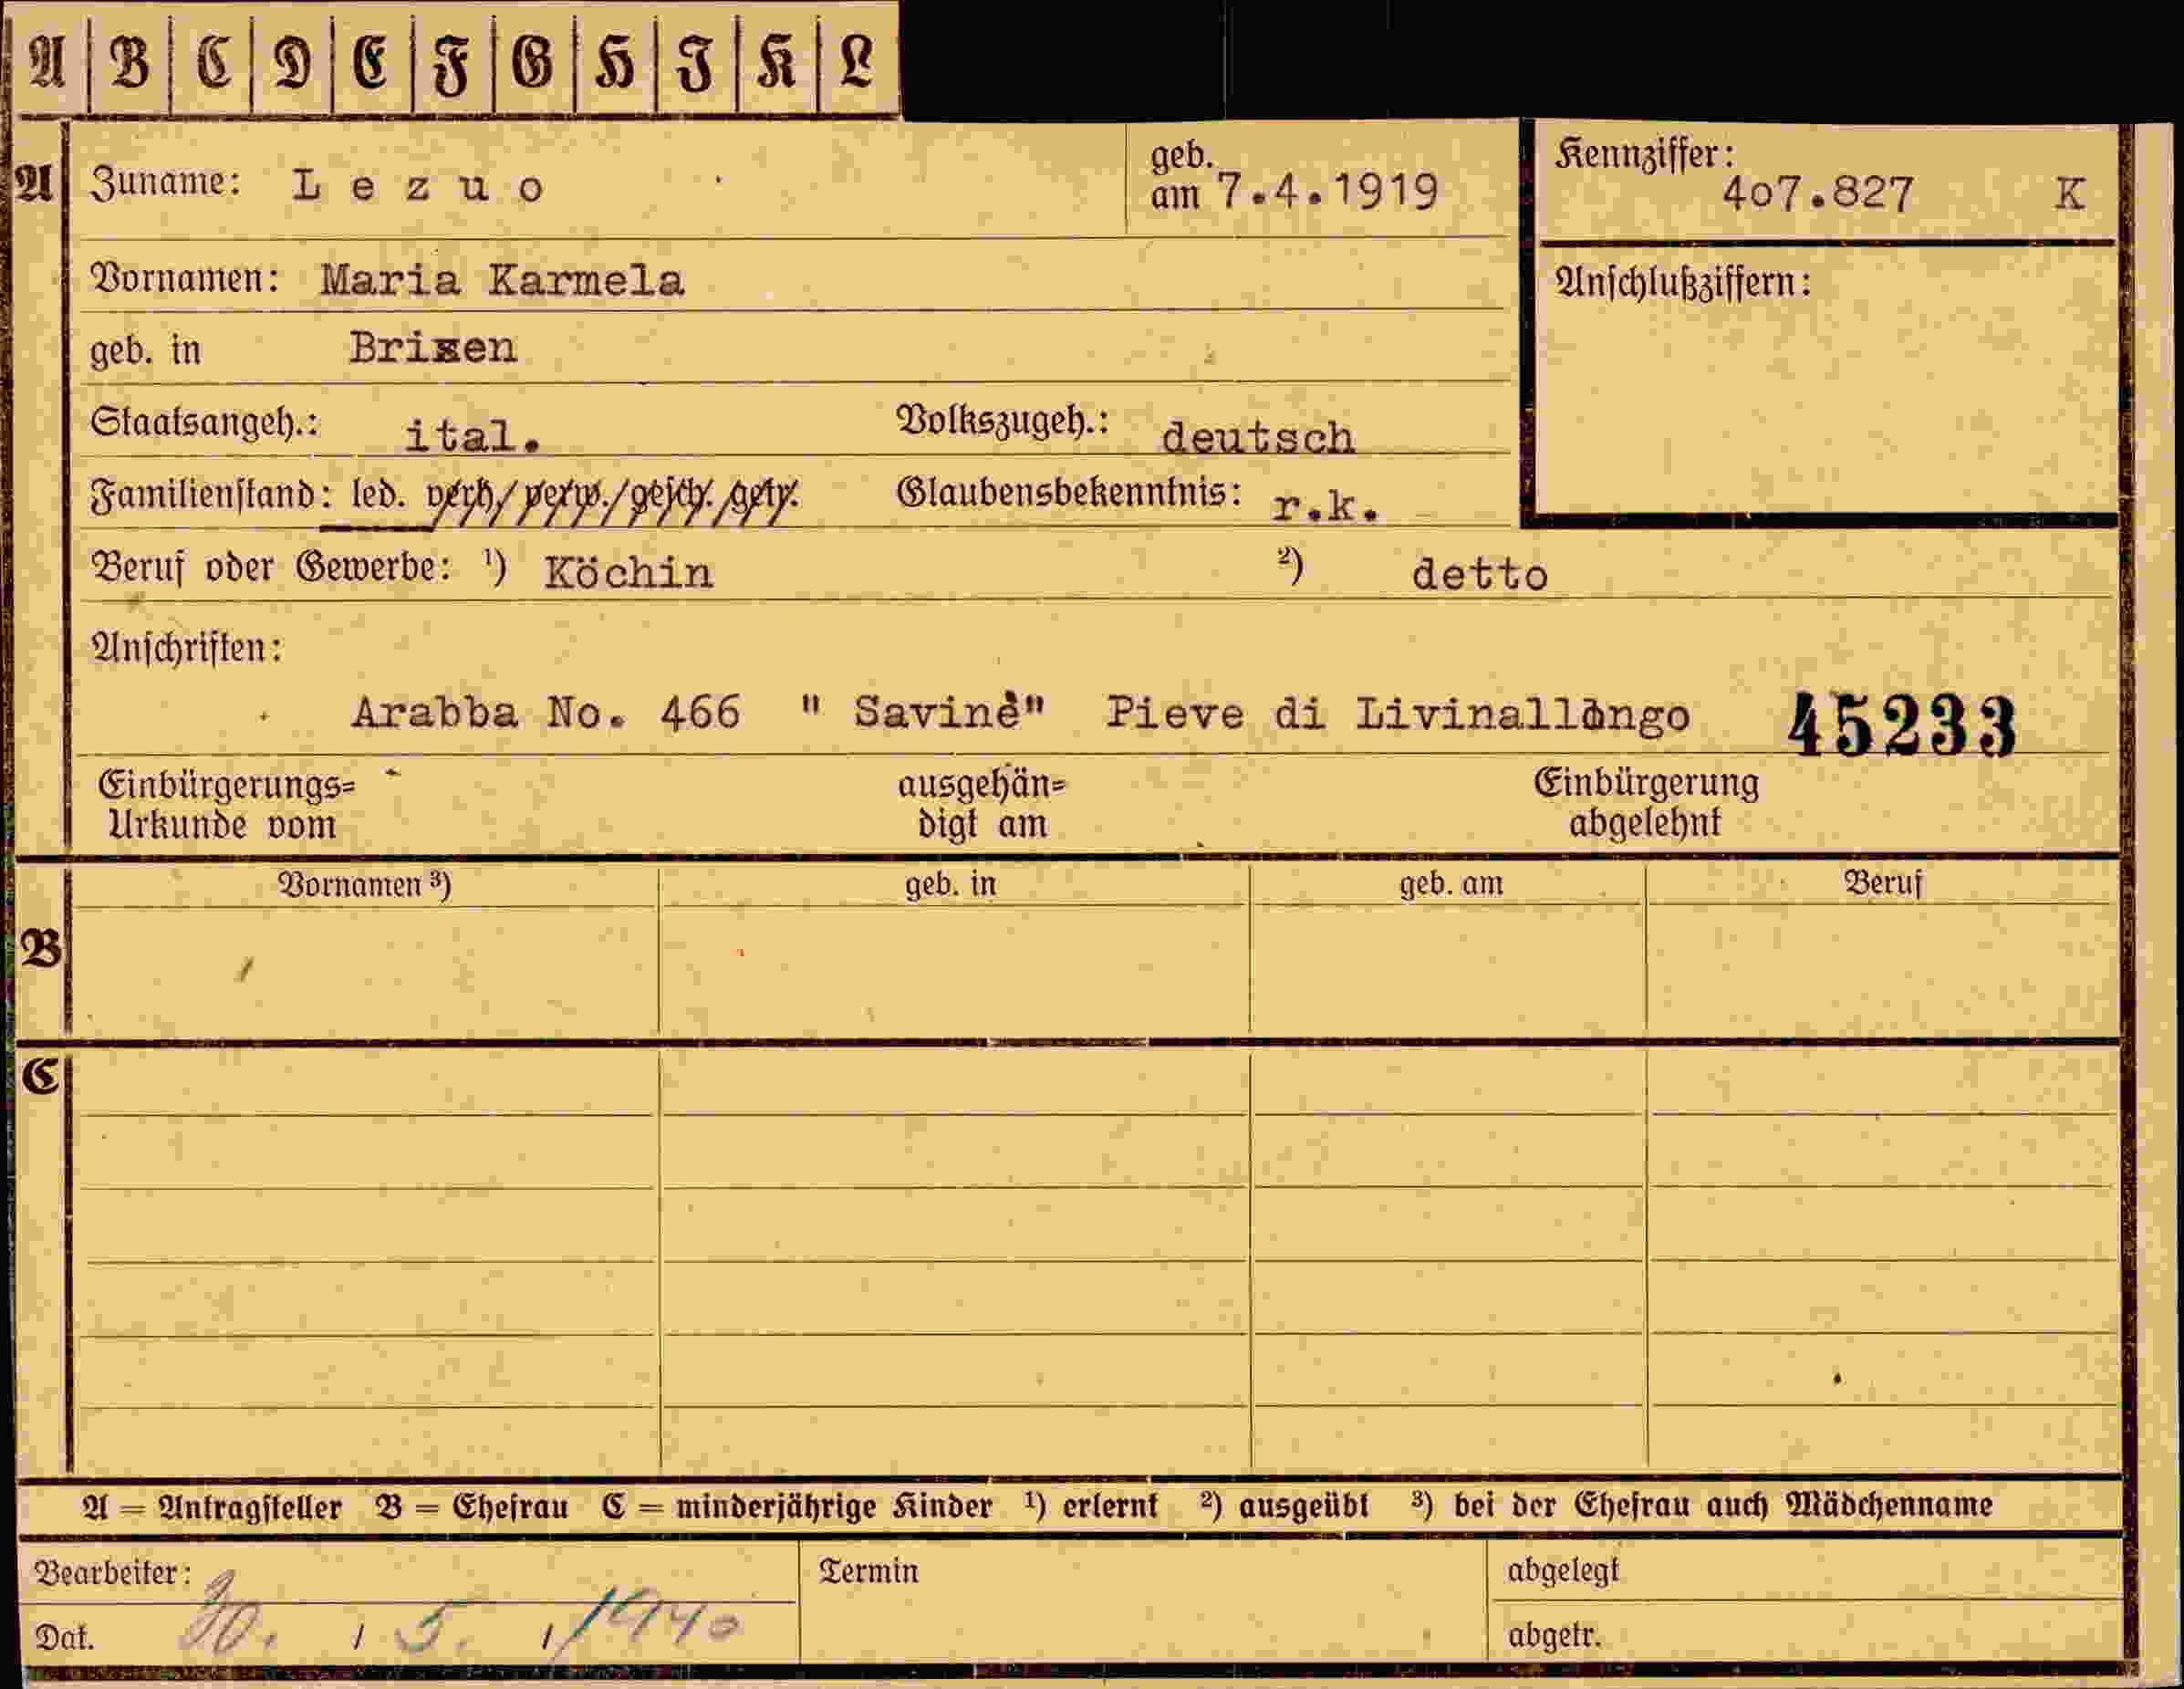 A B C D E F G H J K L
A Zuname: Lezuo geb. am 7.4.1919 Kennziffer: 407.827 K
Vornamen: Maria Karmela Anschlußziffern:
geb. in Brixen
Staatsangeh.: ital. Volkszugeh.: deutsch
Familienstand: led. verh/verw./gesch./getr. Glaubensbekenntnis: r.k.
Beruf oder Gewerbe: ¹) Köchin ²) detto
Anschriften:
Arabba No. 466 " Savinè" Pieve di Livinallongo 45233
Einbürgerungs= ausgehän= Einbürgerung
Urkunde vom digt am abgelehnt
Vornamen ³) geb. in geb. am Beruf
B
C
A = Antragsteller B = Ehefrau C = minderjährige Kinder ¹) erlernt ²) ausgeübt ³) bei der Ehefrau auch Mädchenname
Bearbeiter: Termin abgelegt
Dat. 30. / 5. / 1940 abgetr.